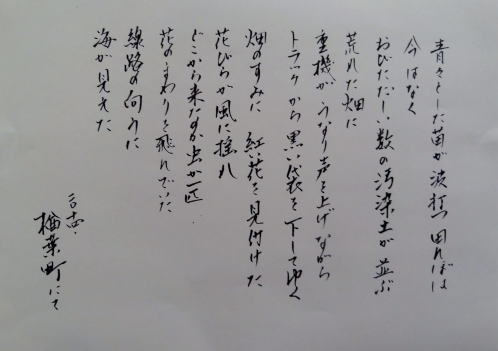 青々とした苗が波打つ田んぼは
今はなく
おびただしい数の汚染土が並ぶ
荒れた畑に
重機がうなり声を上げながら
トラックから黒い袋を下してゆく
畑のすみに 紅い花を見付けた
花びらが風に揺れ
どこから来たのか虫が一匹
花のまわりを飛んでいた
線路の向うに
海が見えた
二〇一四・
楢葉町にて